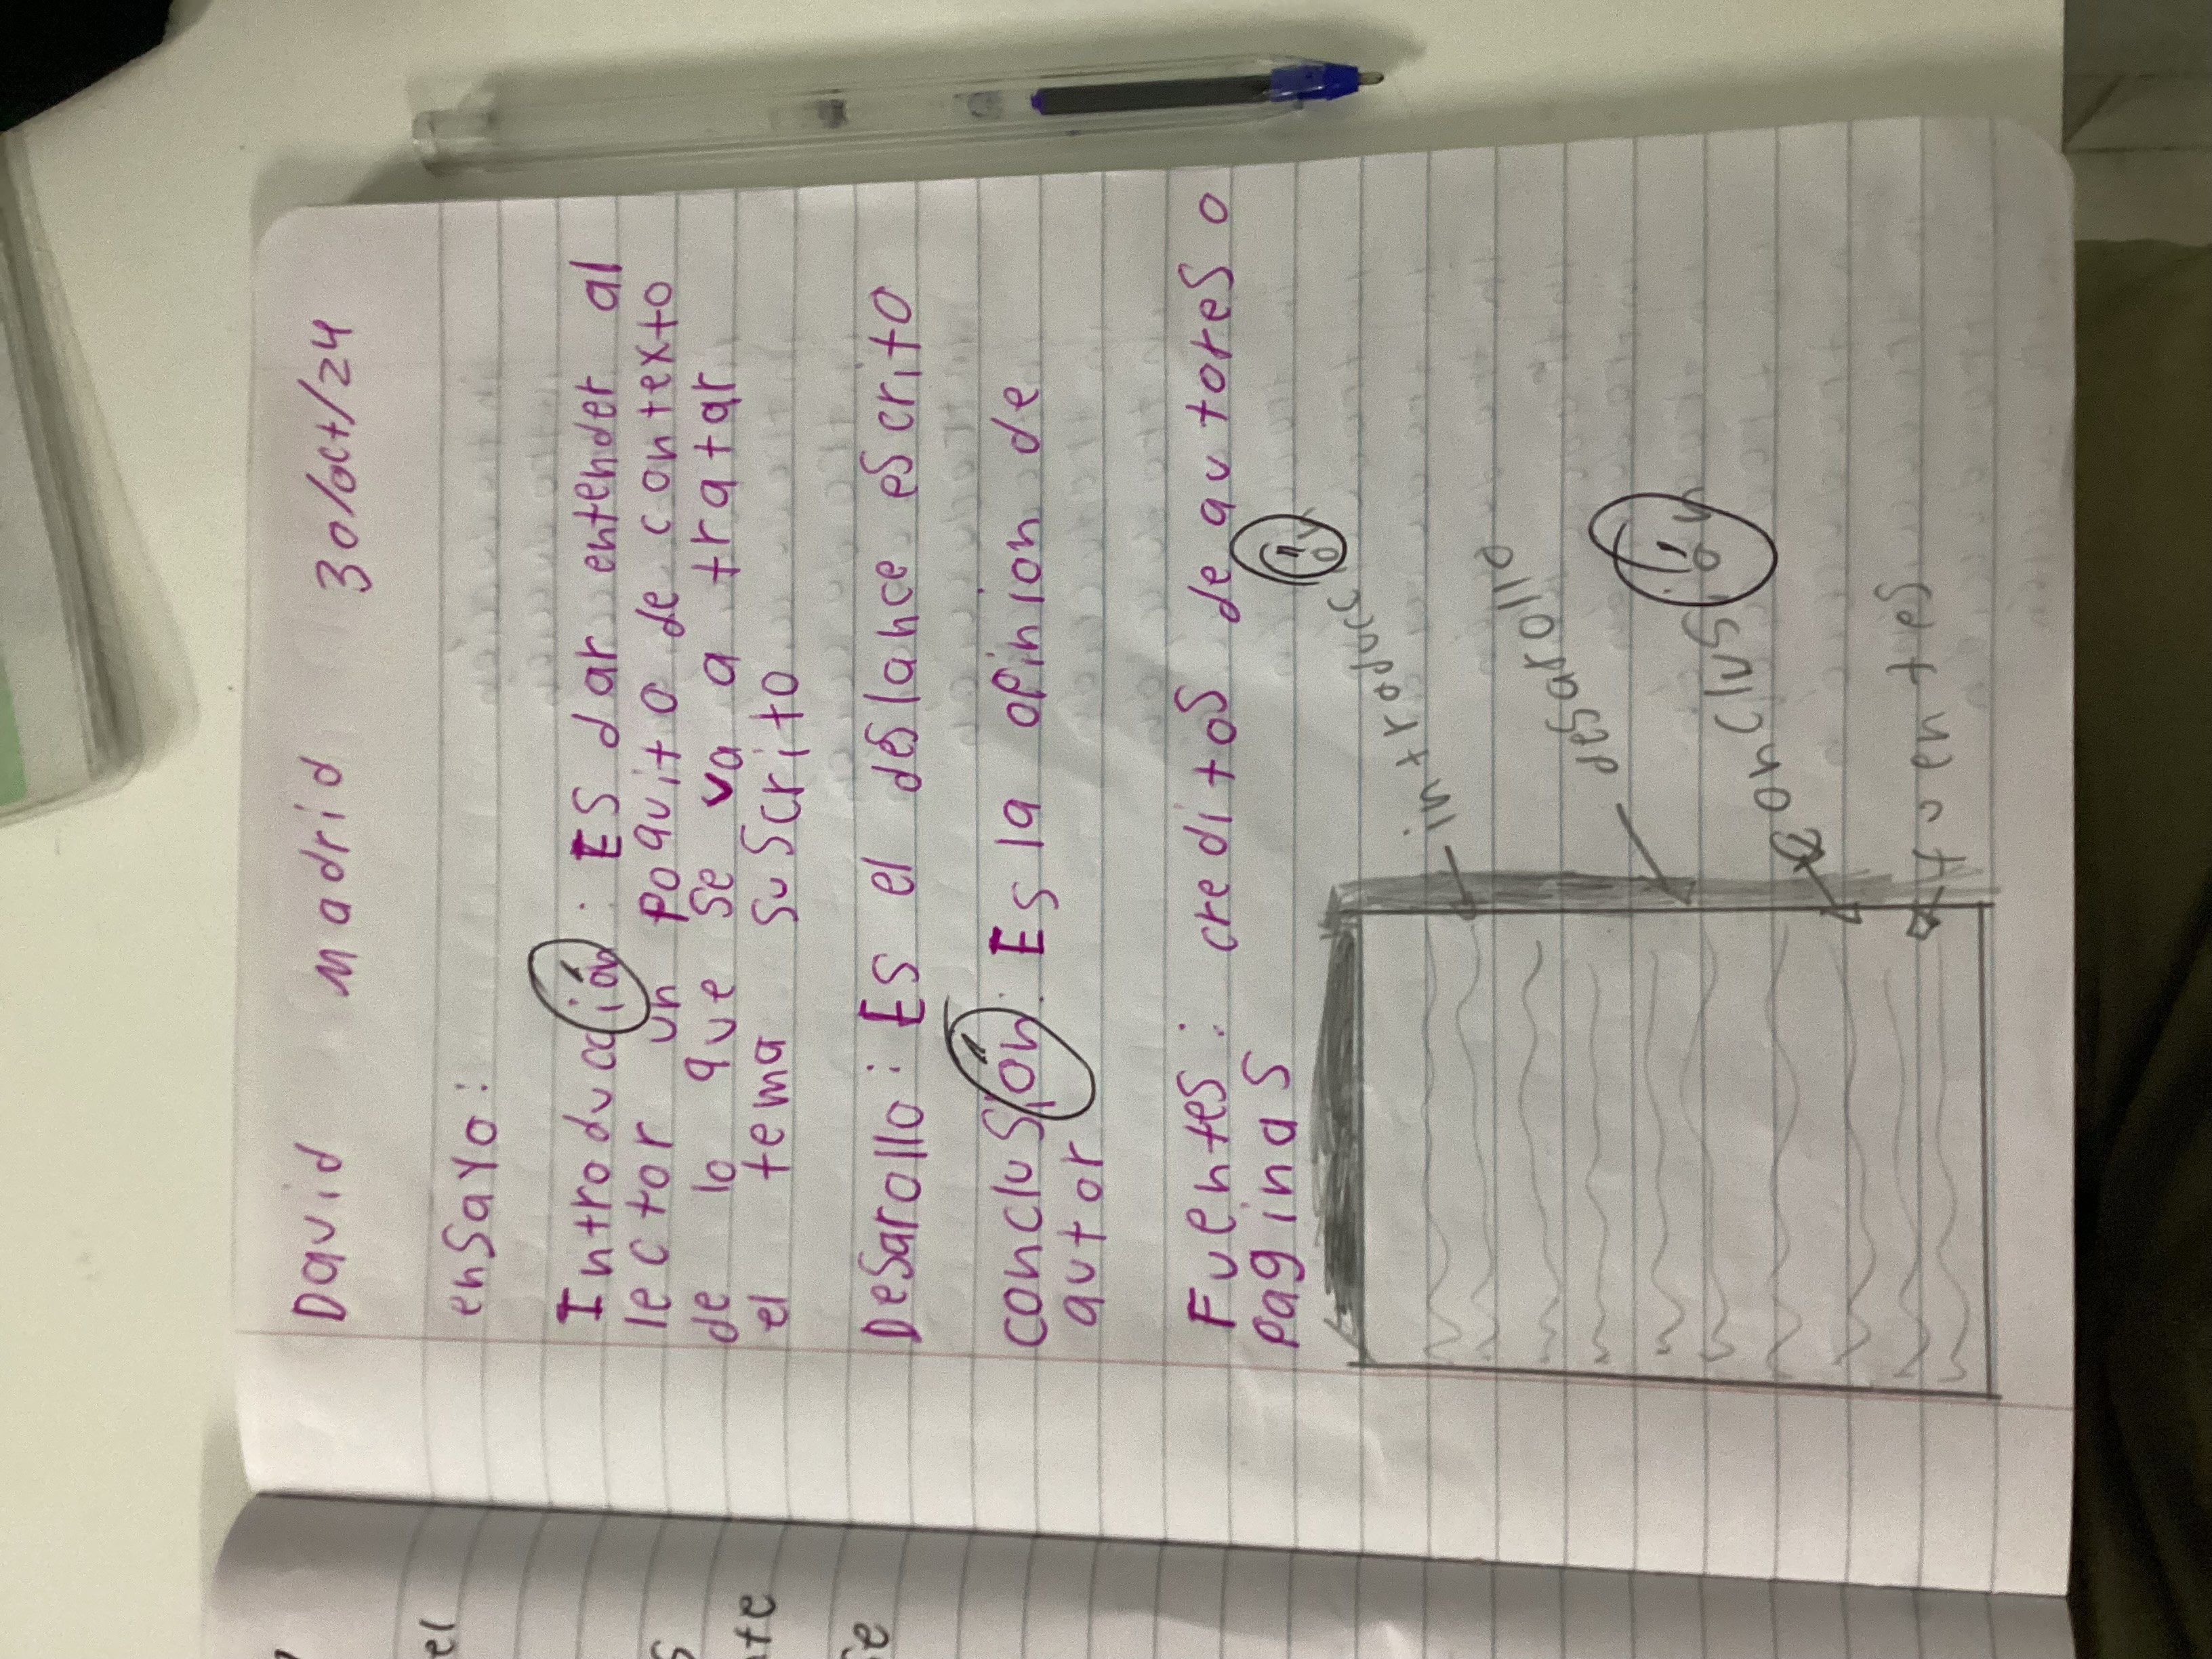 David Madrid 30/oct/24
ensayo:
Introducción: Es dar entender al
lector un poquito de contexto
de lo que se va a tratar
el tema suscrito
Desarollo: Es el deslance escrito
conclusión: Es la opinion de
autor
Fuentes: creditos de autores o
paginas
introducción
desarollo
conclusión
fuentes
el
nte
se